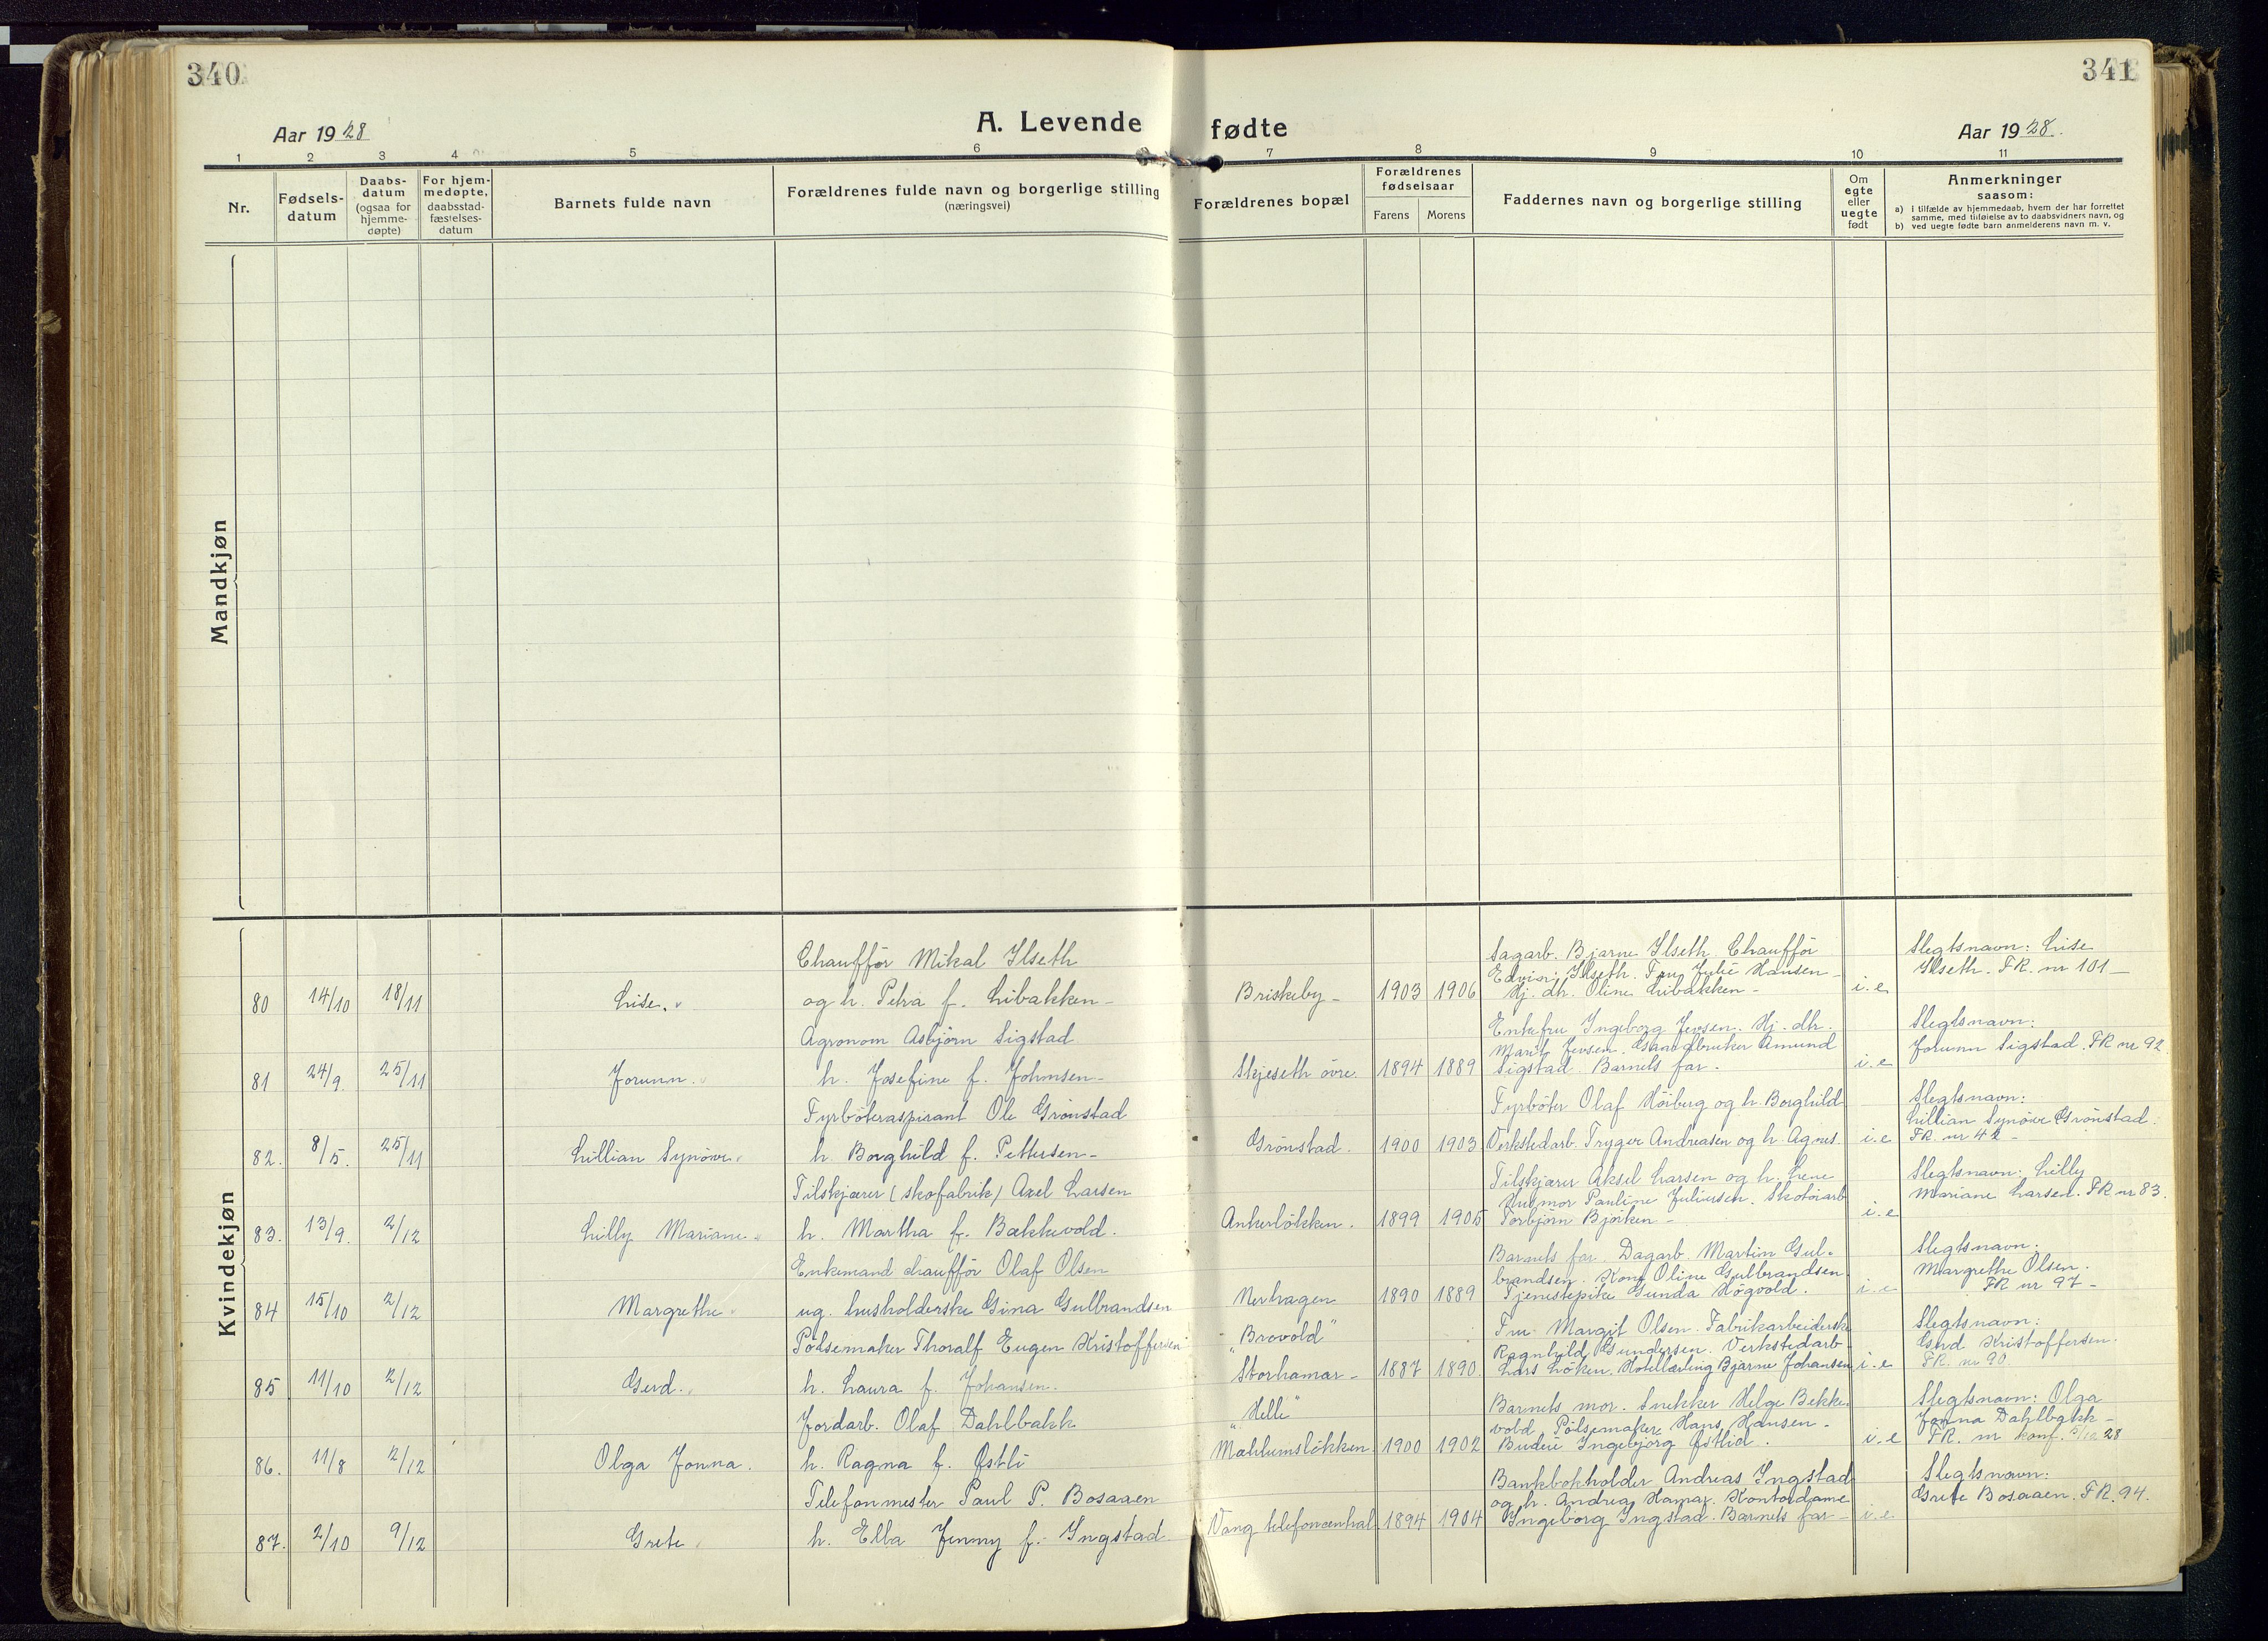 340
341
A. Levende fødte
Aar 1928
Aar 1928.
1 2 3 4 5 6 7 8 9 10 11
Nr.
Fødsels-
datum
Daabs-
datum
(ogsaa for
hjemme-
døpte)
For hjem-
medøpte,
daabsstad-
fæstelses-
datum
Barnets fulde navn
Forældrenes fulde navn og borgerlige stilling
(næringsvei)
Forældrenes bopæl
Forældrenes
fødselsaar
Farens Morens
Faddernes navn og borgerlige stilling
Om
egte
eller
uegte
født
Anmerkninger
saasom:
a) i tilfælde av hjemmedaab, hvem der har forrettet
samme, med tilføielse av to daabsvidners navn, og
b) ved uegte fødte barn anmelderens navn m. v.
Mandkjøn
Kvindekjøn
80 14/10 18/11 Lise.
Chauffór Mikal Ilseth
og h. Petra f. Libakken -
Briskeby - 1903 1906
Sagarb. Bjarne Ilseth Chauffór
Edvin Ilseth. Fru Julie Hansen -
Hj. dh. Oline Libakken -
i. e
Slegtsnavn: Lise
Ilseth. FR. nr 101 -
81 24/9 25/11 Jorunn.
Agronom Asbjørn Sigstad
h. Josefine f. Johnsen -
Skjeseth óvre. 1894 1889
Enkefru Ingeborg Jevsen. Hj. dh.
Marit Jevsen. Gaardbruker Amund
Sigstad. Barnets far.
i. e
Slegtsnavn:
Jorunn Sigstad. FR nr 92
82. 8/5. 25/11 Lillian Synóve.
Fyrbóteraspirant Ole Grónstad
h. Borghild f. Pettersen -
Grónstad. 1900 1903
Fyrbóter Olaf Hóiberg og h. Borghild
Verkstedarb. Trygve Andreasen og h. Agnes.
i. e
Slegtsnavn:
Lillian Synóve Grónstad.
FR. nr 42 -
83. 13/9. 2/12 Lilly Mariane.
Tilskjærer (skofabrik) Axel Larsen
h. Martha f. Bækkevold.
Ankerlókken. 1899 1905
Tilskjærer Aksel Larsen og h. Lene
Husmor Pauline Juliusen. Skotóiarb
Torbjórn Bjórken -
i. e
Slegtsnavn: Lilly
Mariane Larsen. FR nr 83.
84 15/10 2/12 Margrethe
Enkemand chauffór Olaf Olsen
ug. husholderske Gina Gulbrandsen
Nerhagen 1890 1889
Barnets far. Dagarb. Martin Gul-
brandsen. Kone Oline Gulbrandsen
Tjenestepike Gunda Hógvold.
i. e
Slegtsnavn:
Margrethe Olsen.
FR nr 97 -
85 11/10 2/12 Gerd.
Pólsemaker Thoralf Eugen Kristoffersen
h. Laura f. Johansen.
"Brovold"
Storhamar - 1887 1890.
Fru Margit Olsen. Fabrikarbeiderske
Ragnhild Gundersen. Verkstedarb -
Lars Lóken. Hotellærling Bjarne Johansen
i. e
Slegtsnavn:
Gerd Kristoffersen.
FR. nr 90.
86. 11/8 2/12 Olga Jonna.
Jordarb. Olaf Dahlbakk
h. Ragna f. Østli
"Helle"
Mæhlumslókken. 1900 1902
Barnets mor. Snekker Helge Bekke-
vold Pólsemaker Hans Hansen -
Budeie Ingebjórg Østlid.
i. e
Slegtsnavn: Olga
Jonna Dahlbakk -
FR. nr konf. 28
87. 2/10 9/12 Grete
Telefonmester Paul P. Bosaaen
h. Ella Jenny f. Ingstad
Vang telefoncentral 1894 1904
Bankbokholder Andreas Ingstad
og h. Andrea Hamar. Kontordame
Ingeborg Ingstad. Barnets far -
i. e
Slegtsnavn:
Grete Bosaaen. FR. 94.